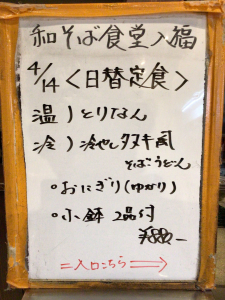 和そば食堂 入福
4/14 <日替定食>
温)とりなん
冷)冷やしタヌキ風
そばうどん
・おにぎり(ゆかり)
・小鉢 2品付
¥880-
=入口こちら⇒